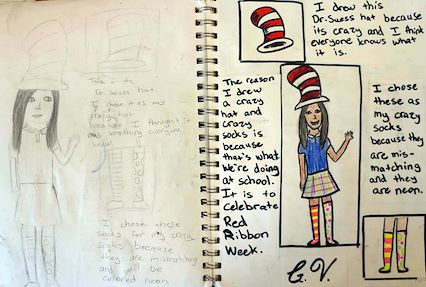 This is the
Dr. Seuss hat.
I chose it as my
crazy hat
because I thought it
was something everyone
knew!
I chose these
socks for my crazy
socks because
they are mismatching
and will be
colored neon
I drew this
Dr. Suess hat because
its crazy and I think
everyone knows what
it is.
The reason
I drew
a crazy
hat and
crazy
socks is
because
that's what
We're doing
at school.
It is to
celebrate
Red
Ribbon
Week.
I chose
these as
my crazy
socks
because they
are mis-
matching
and they
are neon.
G.V.